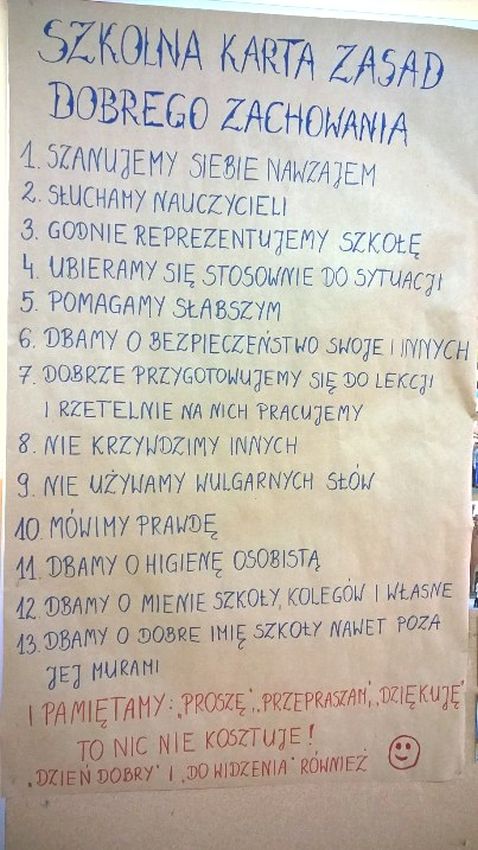 SZKOLNA KARTA ZASAD
DOBREGO ZACHOWANIA
1. SZANUJEMY SIEBIE NAWZAJEM
2. SŁUCHAMY NAUCZYCIELI
3. GODNIE REPREZENTUJEMY SZKOŁĘ
4. UBIERAMY SIĘ STOSOWNIE DO SYTUACJI
5. POMAGAMY SŁABSZYM
6. DBAMY O BEZPIECZEŃSTWO SWOJE I INNYCH
7. DOBRZE PRZYGOTOWUJEMY SIĘ DO LEKCJI
I RZETELNIE NA NICH PRACUJEMY
8. NIE KRZYWDZIMY INNYCH
9. NIE UŻYWAMY WULGARNYCH SŁÓW
10. MÓWIMY PRAWDĘ
11. DBAMY O HIGIENĘ OSOBISTĄ
12. DBAMY O MIENIE SZKOŁY, KOLEGÓW I WŁASNE
13. DBAMY O DOBRE IMIĘ SZKOŁY NAWET POZA
JEJ MURAMI
I PAMIĘTAMY: „PROSZĘ”, „PRZEPRASZAM”, „DZIĘKUJĘ”
TO NIC NIE KOSZTUJE!
„DZIEŃ DOBRY” I „DO WIDZENIA” RÓWNIEŻ